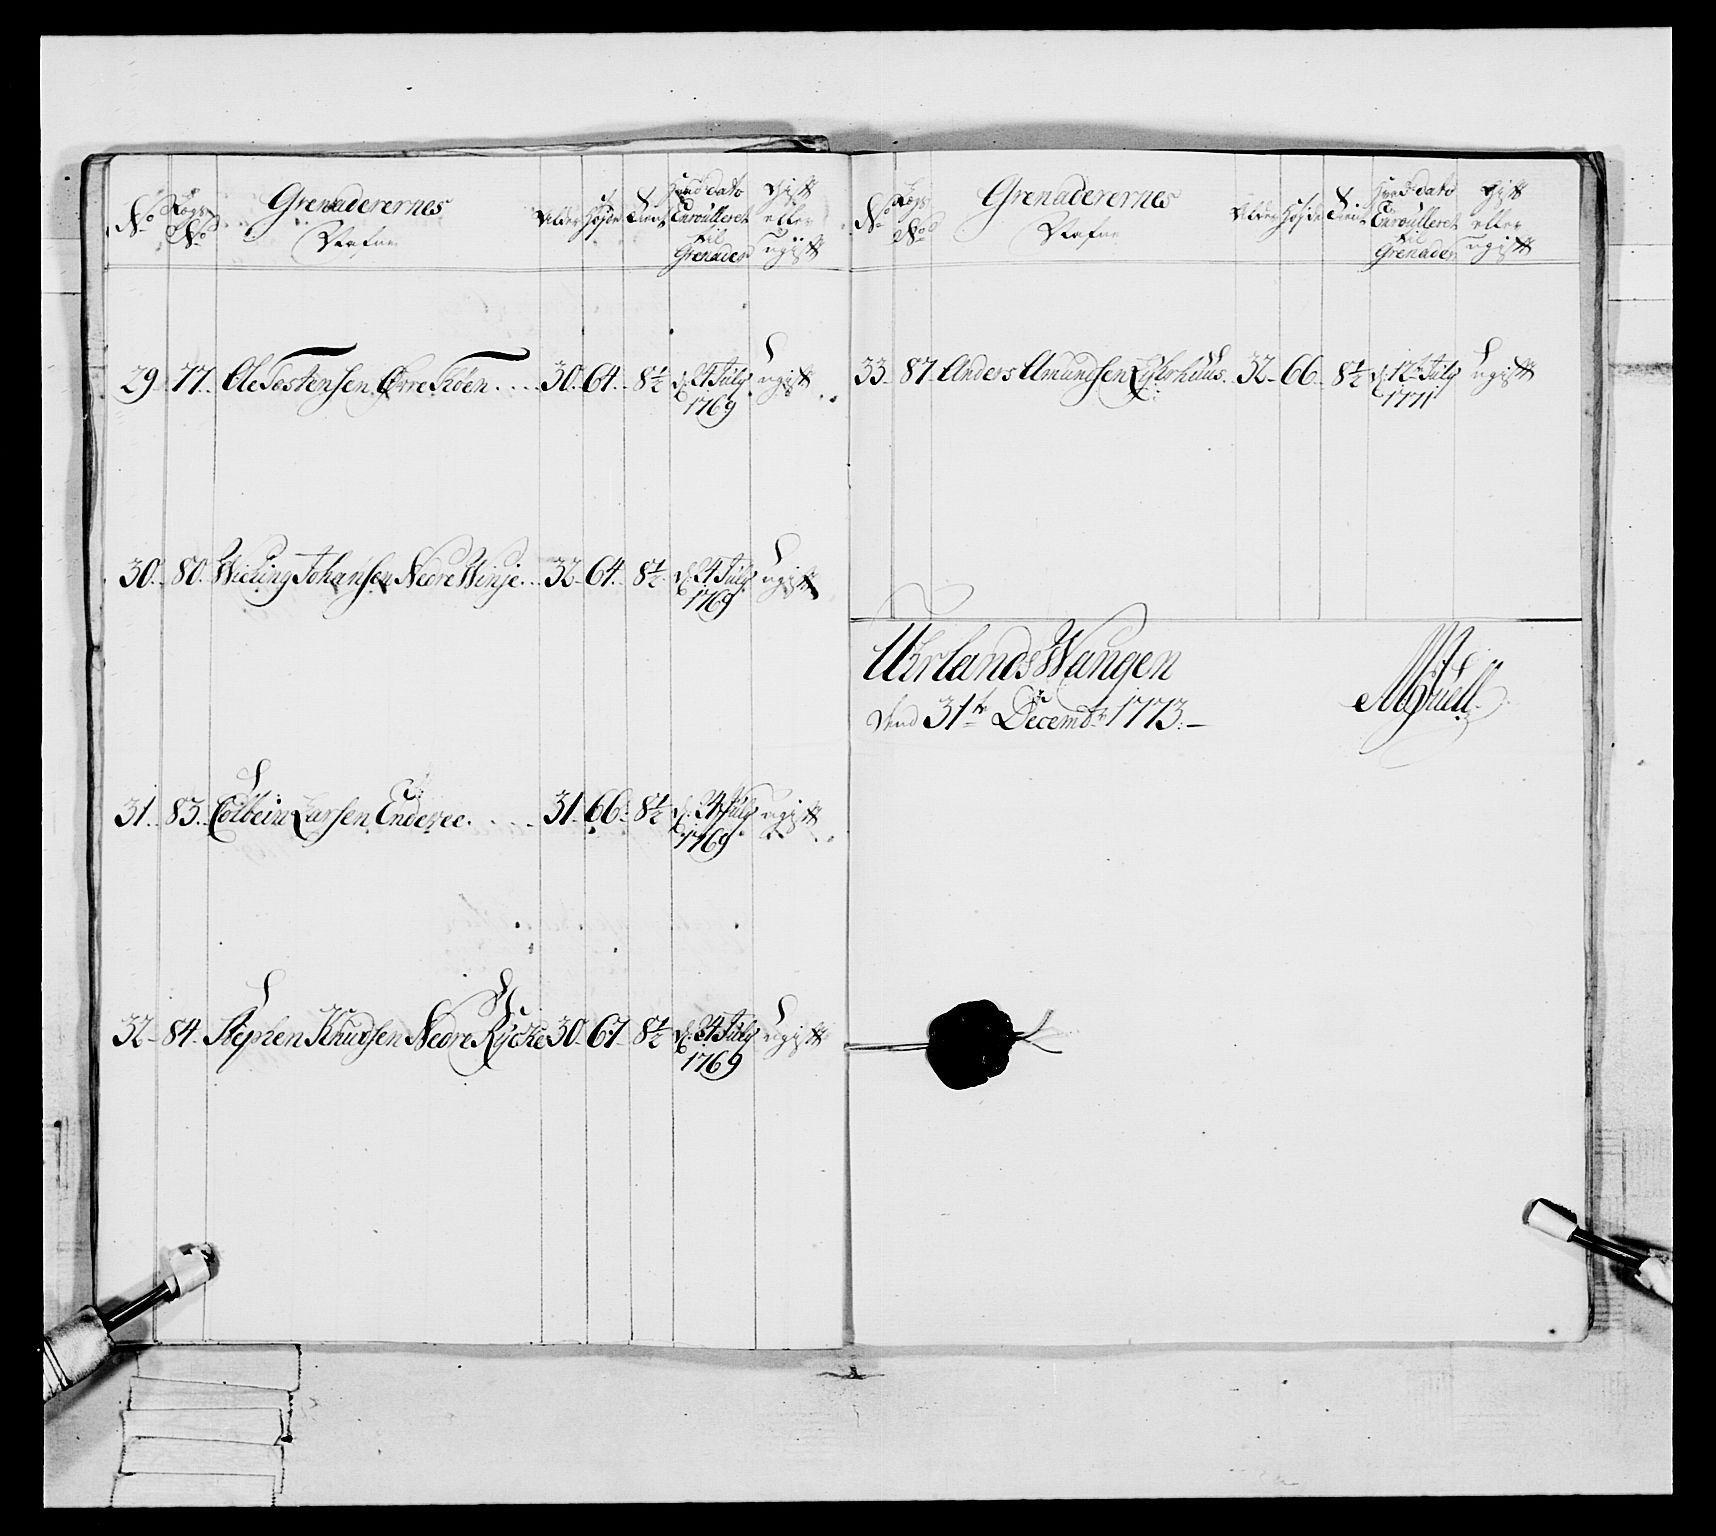 No Lægs No Grenaderernes Nafne Alder Høyde Tient Hvad dato Enroulleret til Grenader Gift eller ugift
29 77 Ole Tostensen Øvre Frøen 30 64 8½ d. 24 July 1769 ugift
30 80 Wiching Johansen Nedre Winje 32 64 8½ d. 24 July 1769 ugift
31 83 Colbein Larsen Enderee 31 66 8½ d. 24 July 1769 ugift
32 84 Stephen Knudsen Nedre Rÿcke 30 67 8½ d. 24 July 1769 ugift
No Lægs No Grenaderernes Nafne Alder Høyde Tient Hvad dato Enroulleret til Grenader Gift eller ugift
33 87 Anders Amundsen 32 66 8½ d. 12te July 1771 ugift
Uhrlands Wangen
dend 31te Decembr 1773